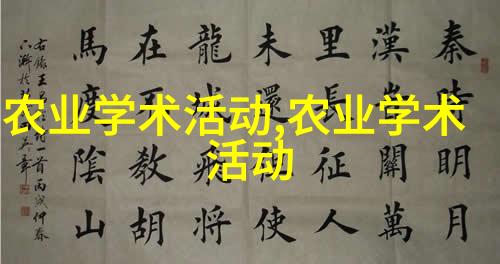 秦時明月
漢旹關萬
里長征人
未還但使
龍城飛將
在不教胡
馬度陰山
右錄王
首丙戌仲春
农业学术活动,农业学术
活动